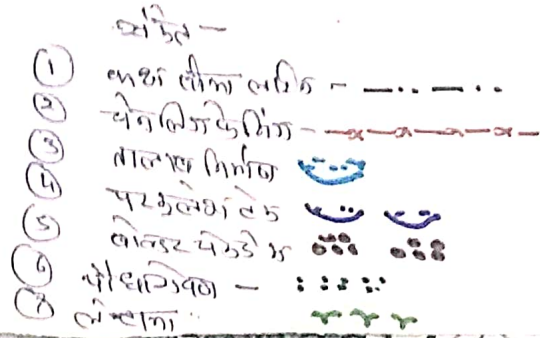 संकेत -
① कक्ष सीमा लाईन -
② चेनलिंक फेंसिंग -
③ तालाब निर्माण
④ परकुलेशन टेंक
⑤ बोल्डर चेकडेम
⑥ पौधारोपण -
⑦ लेन्टाना